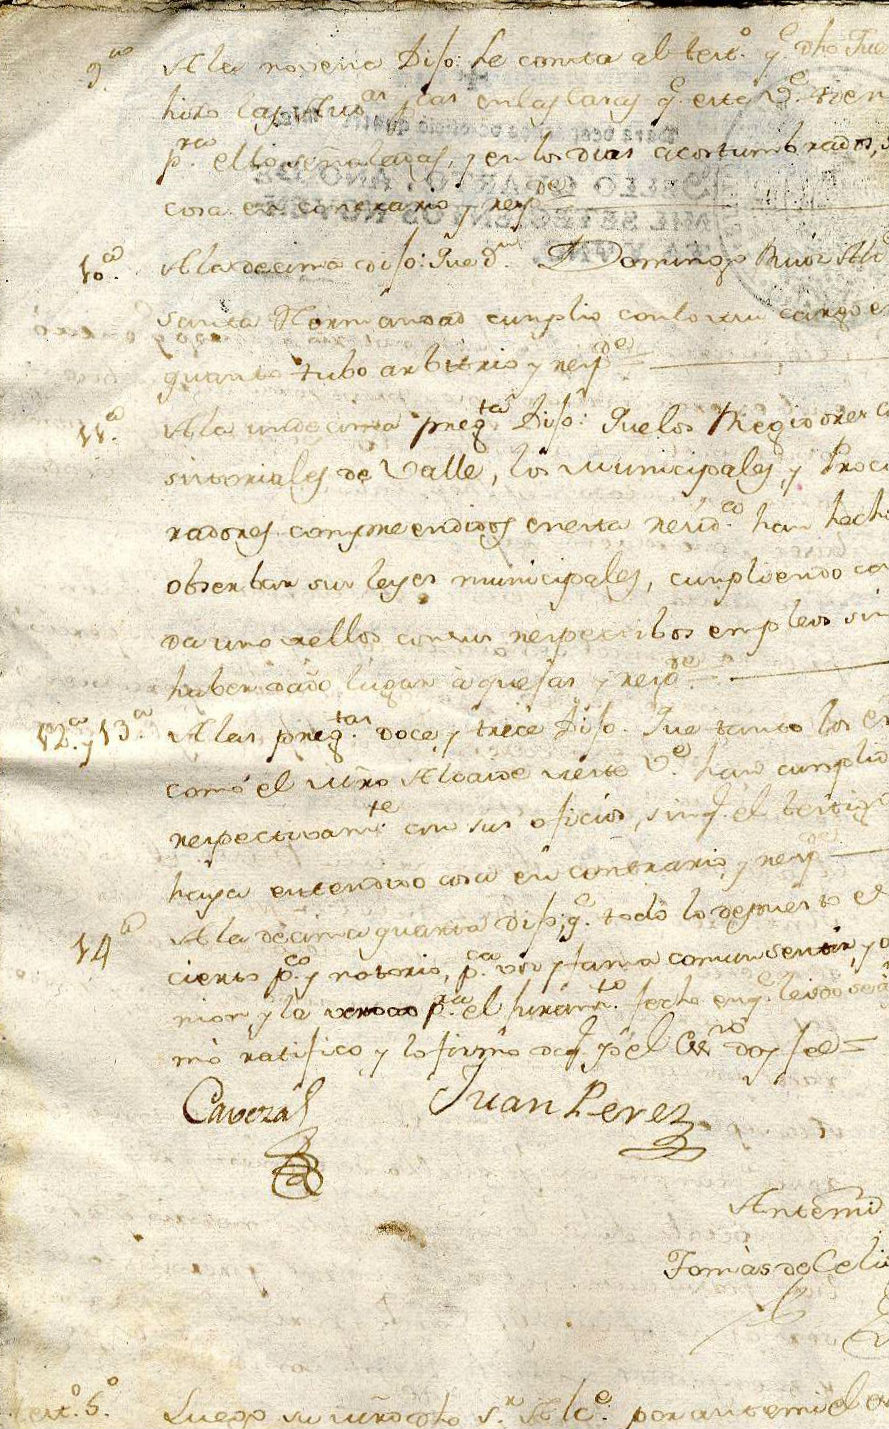 9.ª A la novena Dijo: Le consta al test.º q.e dho Jue
hizo las Aud.as en las casas q.e este V.e tien
p.ra ello señaladas, y en los dias acostumbrados, s
cosa en contrario y resp.de
10.ª A la decima dijo: Que d.n Domingo Ruiz Al
Santa Hermandad cumplio con lo de su cargo e
quanto tubo arbitrio y resp.de
11.ª A la undecima preg.ta Dijo: Que los Regidores C
sistoriales de Valle, los Municipales, y Procu
radores comprendidos en esta resid.ca han hecho
obserbar sus leyes municipales, cumpliendo ca
da uno dellos con sus respectibos empleos sin
haber dado lugar à quejas y resp.de
12.ª y 13.ª A las preg.tas doce y trece Dijo. Que tanto los
como el Alcaide de este V.e han cumplido
respectivam.te con sus oficios, sin q.e el testigo
haya entendido cosa en contrario, y resp.de
14.ª A la decima quarta Dijo, q.e todo lo depuesto es
cierto p.co y notorio, p.ca voz y fama comun sentir, y o
nion, y la verdad p.ra el juram.to fecho en q.e leido se a
mó ratifico y lo firmó de q.e yo el Ess.no doy fee=
Cavezas Juan Perez
Antemi
Tomàs de Celis
test.º 5.º Luego su mrd dho s.r Alc.e por antemi el